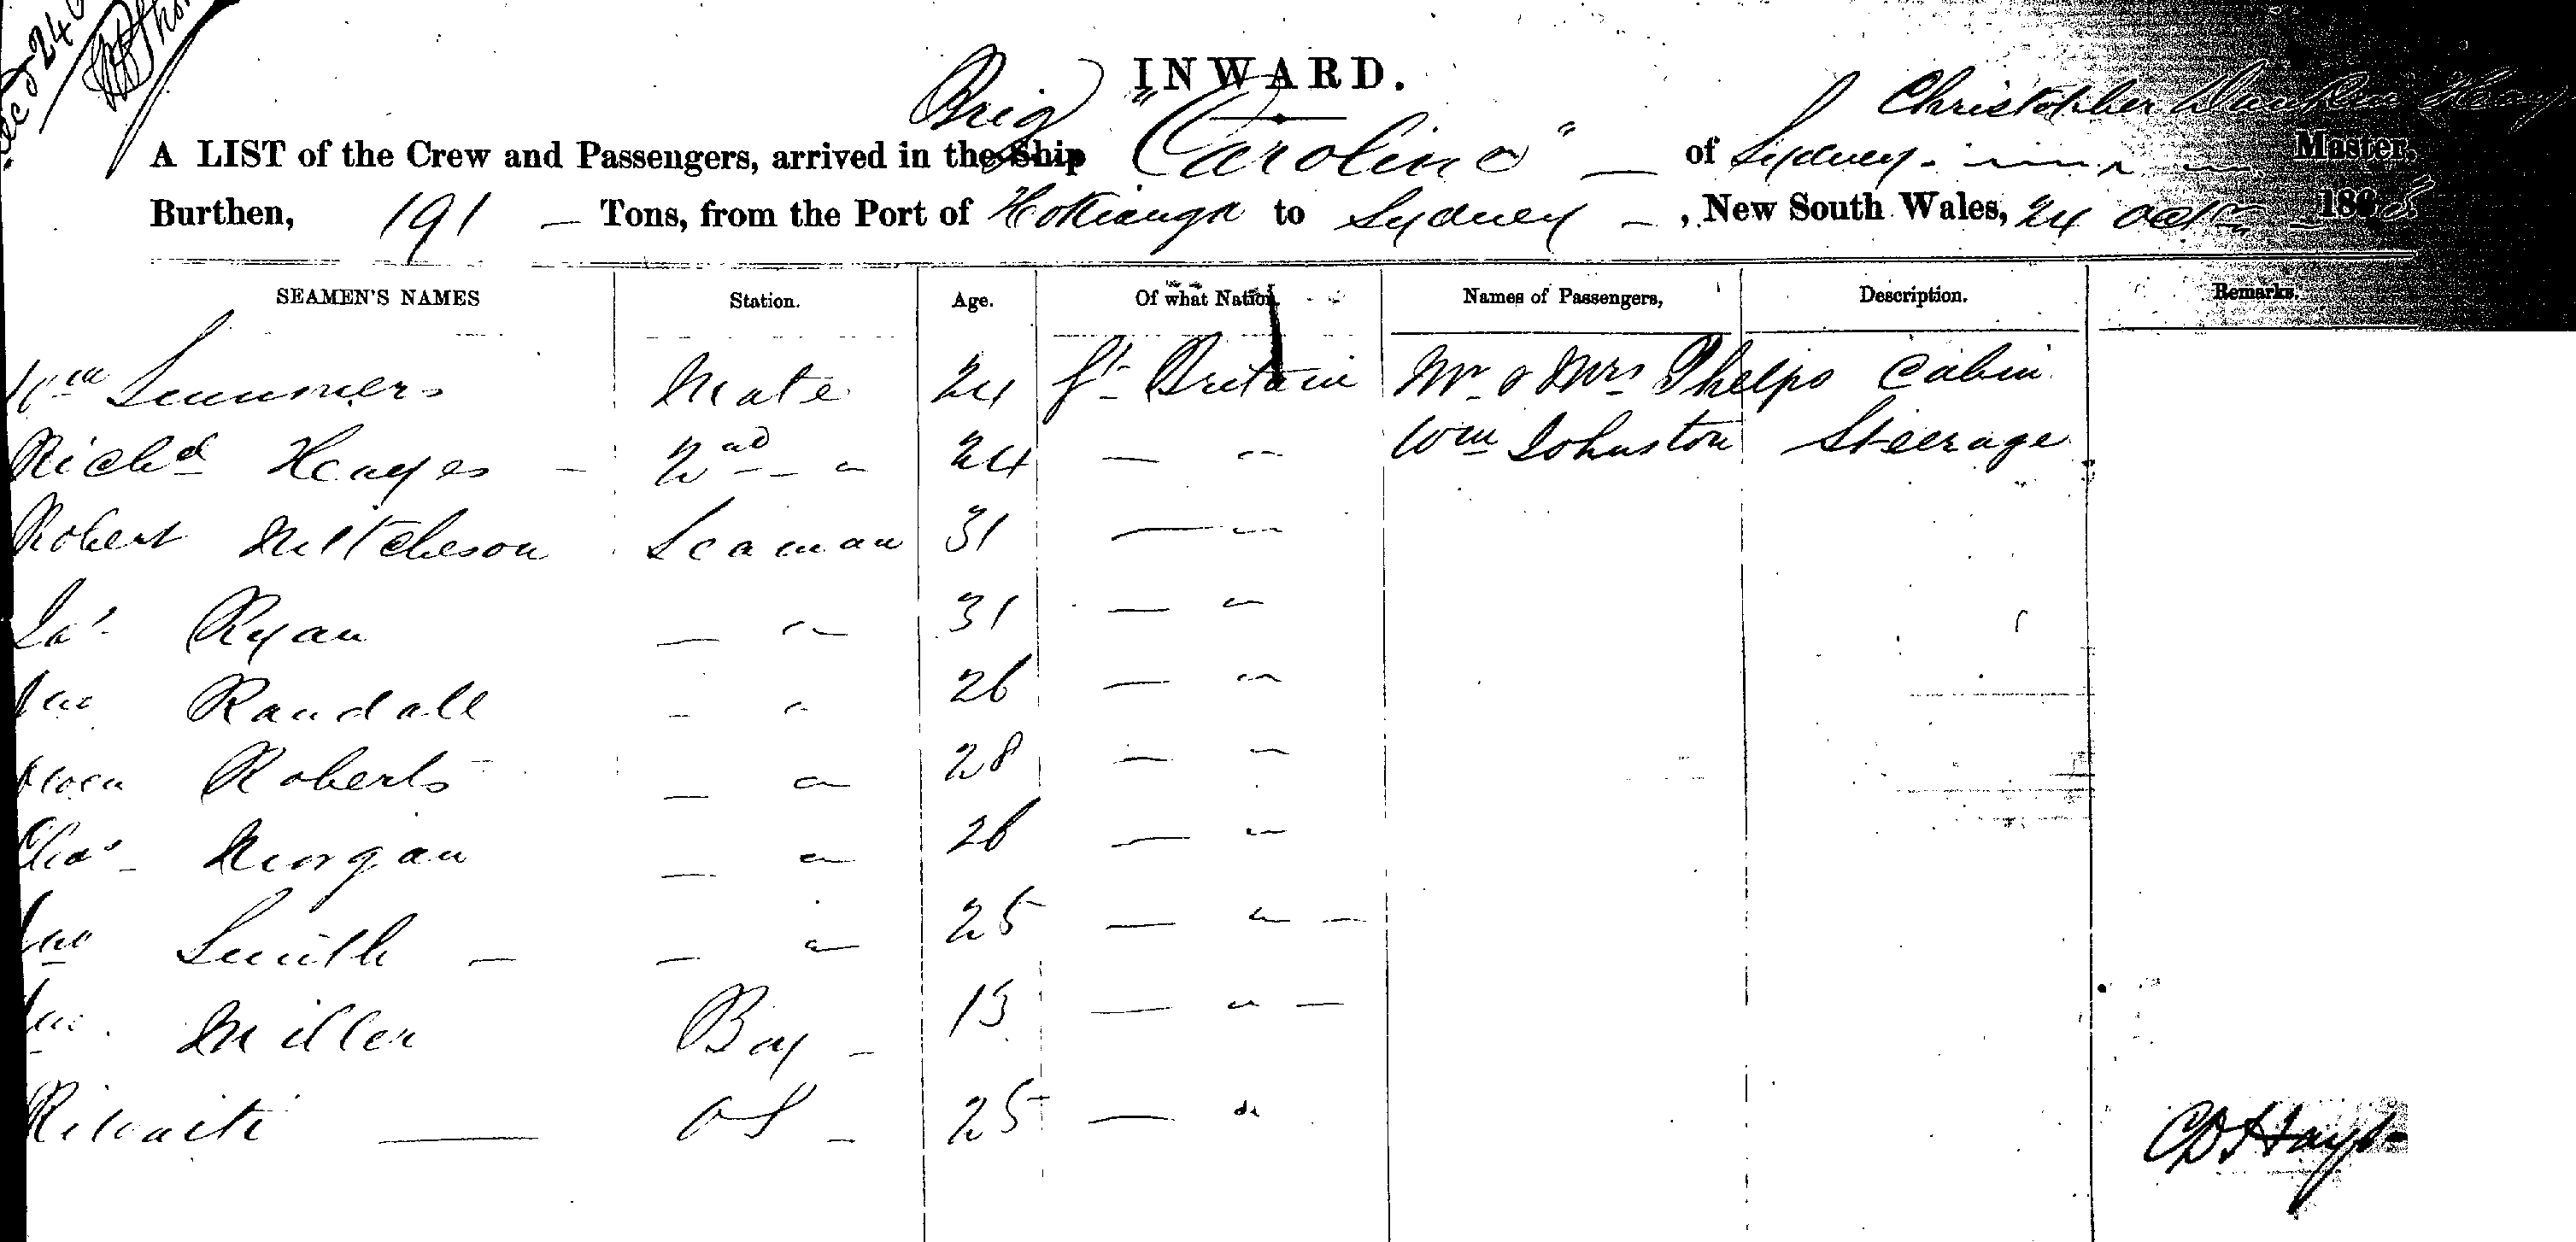 INWARD.
Brig
Christopher
A LIST of the Crew and Passengers, arrived in the Ship "Caroline" of Sydney Master,
Burthen, 191 Tons, from the Port of Hokianga to Sydney, New South Wales, 24 Octr 186
SEAMEN'S NAMES Station. Age. Of what Nation. Names of Passengers, Description. Remarks.
Wm Summers Mate 24 Gt Britain Mr & Mrs Phelps Cabin
Richd Hayes 2nd 〃 24 — 〃 Wm Johnston Steerage
Robert Mitcheson Seaman 31 — 〃
Jas Ryan — 〃 31 — 〃
Jno Randall — 〃 26 — 〃
Owen Roberts — 〃 28 — 〃
Chas Morgan — 〃 26 — 〃
Jno Smith — 〃 25 — 〃 —
Jno Miller Boy 13 — 〃 —
OS 25 — 〃
CDHays